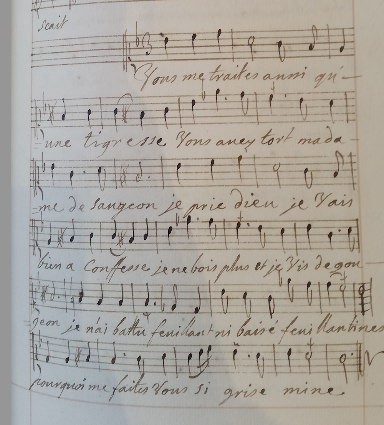 scait
Vous me traites aussi qu'
une tigresse Vous avey tort mada
me de Saugeon je prie dieu je Vais
bien a Confesse je ne bois plus et je Vis de gou
geon je n'ai battu feuillant ni baisé feuillantines
pourquoi me faites Vous Si grise mine